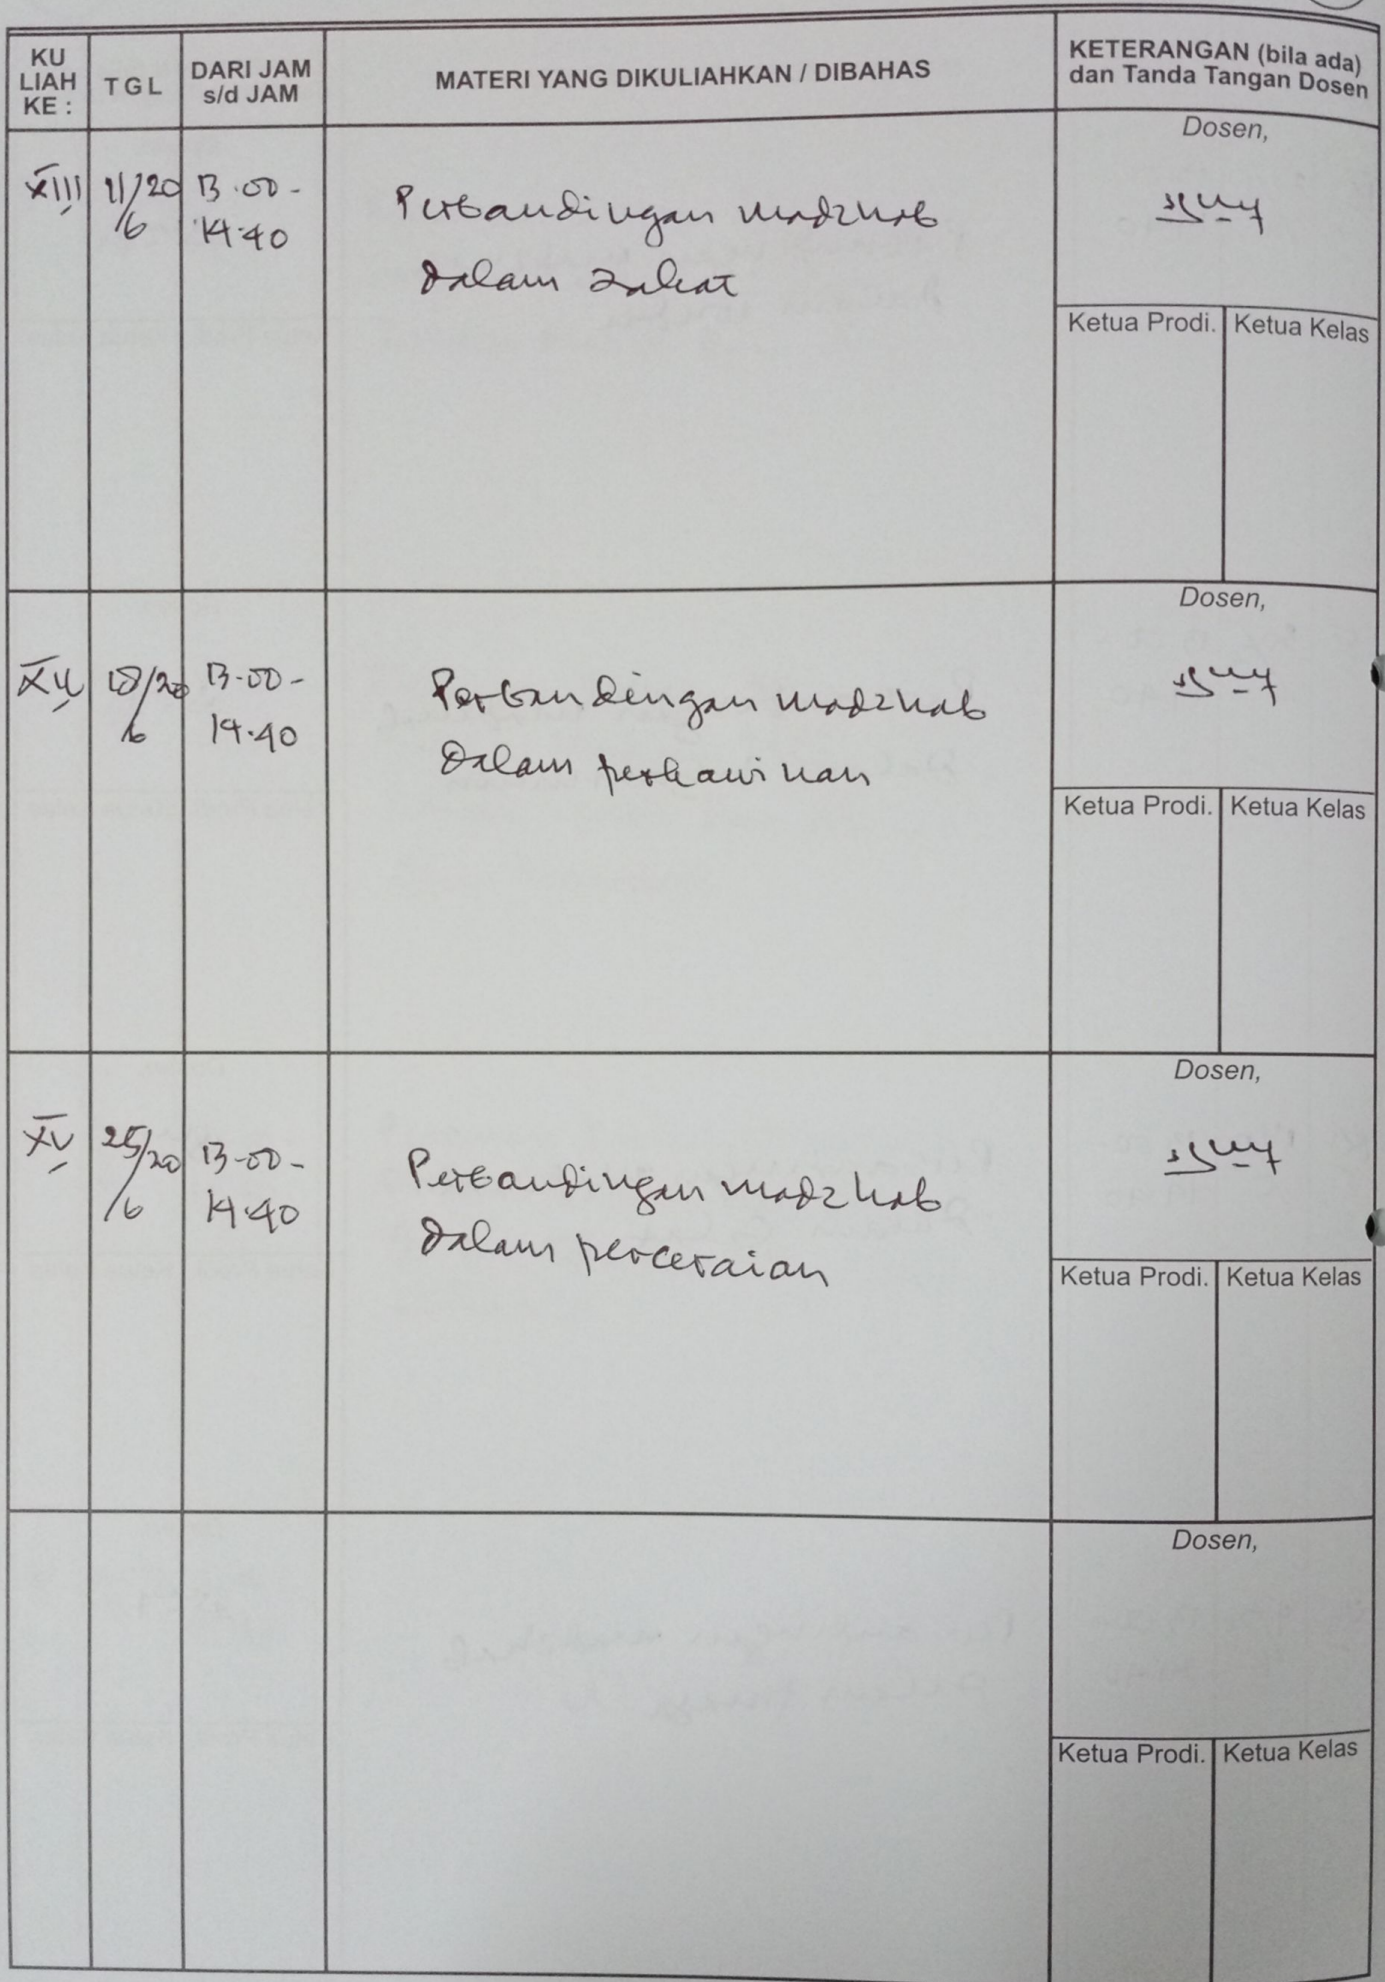 KU LIAH KE :
T G L
DARI JAM s/d JAM
MATERI YANG DIKULIAHKAN / DIBAHAS
KETERANGAN (bila ada)
dan Tanda Tangan Dosen
Dosen,
XIII 11/20 13.00 -
/6 14.40
Perbandingan madzhab
dalam zakat
Ketua Prodi. Ketua Kelas
Dosen,
18/20 13-00 -
/6 14.40
Perbandingan madzhab
dalam perkawinan
Ketua Prodi. Ketua Kelas
Dosen,
XV 25/20 13-00 -
/6 14.40
Perbandingan madzhab
dalam perceraian
Ketua Prodi. Ketua Kelas
Dosen,
Ketua Prodi. Ketua Kelas